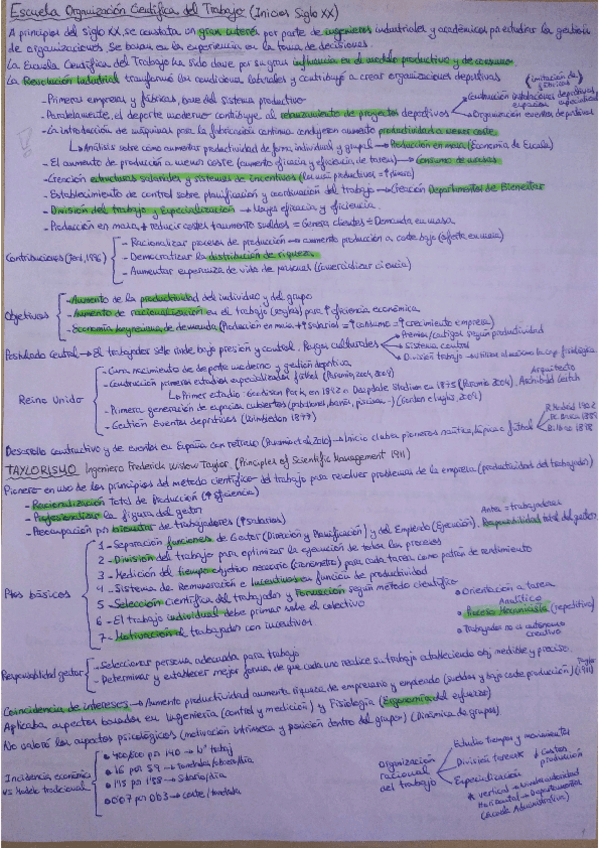 Escuela Organización Científica del Trabajo (Inicios Siglo XX)
A principios del siglo XX, se constata un gran interés por parte de ingenieros industriales y académicos por estudiar la gestión
de organizaciones. Se basan en la experiencia en la toma de decisiones.
La Escuela Científica del Trabajo ha sido clave por su gran influencia en el modelo productivo y de consumo.
La Revolución Industrial transformó las condiciones laborales y contribuyó a crear organizaciones deportivas
- Primeras empresas y fábricas, base del sistema productivo
- Paralelamente, el deporte moderno contribuye al deportivos
Construcción instalaciones deportivas
Organización eventos deportivos
- La introducción de máquinas para la fabricación continua aumento productividad a menor coste
Análisis sobre cómo aumentar productividad de forma individual y grupal → Producción en masa (Economía de Escala)
- El aumento de producción a menor coste (aumento eficacia y eficiencia de tareas) → Consumo de masas
- Creación estructuras salariales y sistemas de incentivos (los más productivos = ↑ prima)
- Establecimiento de control sobre planificación y coordinación del trabajo → Creación Departamentos de Bienestar
- División del trabajo y Especialización → Mayor eficacia y eficiencia.
- Producción en masa, + reducir costes + aumento sueldos = Genera clientes = Demanda en masa.
Contribuciones
- Racionalizar procesos de producción → aumento producción a coste bajo (oferta en masa)
- Democratizar la distribución de riqueza
- Aumentar esperanza de vida de personas
Objetivos
- Aumento de la productividad del individuo y del grupo
- Aumento de racionalización en el trabajo (reglas) para ↑ eficiencia económica
- Economía keynesiana de demanda (Producción en masa + ↑ salarios = ↑ consumo = ↑ crecimiento empresa)
Postulado Central → El trabajador sólo rinde bajo presión y control. Rasgos culturales
Premios/castigos según productividad
Sistema central
División trabajo
Reino Unido
- Cuna nacimiento de deporte moderno y gestión deportiva
- Construcción primeros estadios especializados fútbol
Primer estadio: Goodison Park, en 1892
Arquitecto
Archibald Leitch
- Primera generación de espacios cubiertos
- Gestión Eventos deportivos (Wimbledon 1877)
Desarrollo constructivo y de eventos en España con retraso → Inicio clubes pioneros náutica, hípica y fútbol
R. Madrid 1902
Bilbao 1898
TAYLORISMO Ingeniero Frederick Winslow Taylor. (Principles of Scientific Management 1911)
Pionero en uso de los principios del método científico del trabajo para resolver problemas de la empresa (productividad del trabajador)
- Racionalización Total de Producción (↑ eficiencia)
- Profesionalizar la figura del gestor
- Preocupación por bienestar de trabajadores (↑ salarios)
Antes = trabajadores
Ptos básicos
1 - Separación funciones de Gestor (Dirección y Planificación) y del Empleado (Ejecución). Responsabilidad total del gestor.
2 - División del trabajo para optimizar la ejecución de todos los procesos
3 - Medición del tiempo objetivo necesario (cronómetro) para cada tarea como patrón de rendimiento
4 - Sistema de Remuneración e Incentivos en función de productividad
5 - Selección científica del trabajador y Formación según método científico
6 - El trabajo individual debe primar sobre el colectivo
7 - Motivación al trabajador con incentivos
• Orientación a tarea
Analítico
• Proceso Mecanicista (repetitivo)
• Trabajador no es autónomo
creativo
Responsabilidad gestor
- Seleccionar persona adecuada para trabajo
- Determinar y establecer mejor forma de que cada uno realice su trabajo estableciendo obj. medible y preciso.
Coincidencia de intereses → Aumento productividad aumenta riqueza de empresario y empleado (sueldos y bajo coste producción) (Taylor 1911)
Aplicaba aspectos basados en Ingeniería (control y medición) y Fisiología (Ergonomía del esfuerzo)
No valoró los aspectos psicológicos (motivación intrínseca y posición dentro del grupo) (Dinámica de grupos)
Incidencia económica
vs Modelo tradicional
• 400/600 por 140 → Nº trabaj
• 16 por 59 → toneladas/hombre/día
• 1'15 por 1'88 → Salario/día
• 0'07 por 0'03 → coste/tonelada
Organización
racional
del trabajo
Estudio tiempos y movimientos
División tareas
↓ Costes
producción
Especialización
* vertical →
Horizontal → Departamental
(Escuela Administrativa)